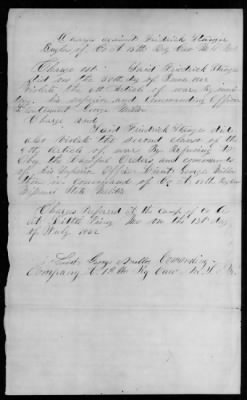 Charges against Friedrick Stanger
Bugler of Co A 12th Reg Cav M. S. M.
Charge 1st: Said Friedrick Stanger
did on the 30th day of June 1862
Violate the 6th Article of war by
his superior and Commanding Officer
Lieutenant George Muller
Charge 2nd
Said Friedrick Stanger did
also violate the second clause of the
9th Article of war By Refusing to
obey the Lawful Orders and commands
of his Superior Officer Lieut George Muller
then in Command of Co A 12th Reg Cav
Missouri State Militia
Charges Preferred at the camp of Co A
at Mo on the 13th day
of July 1862
Lieut George Muller Comanding
Company A 12th Reg Cav M. S. M.